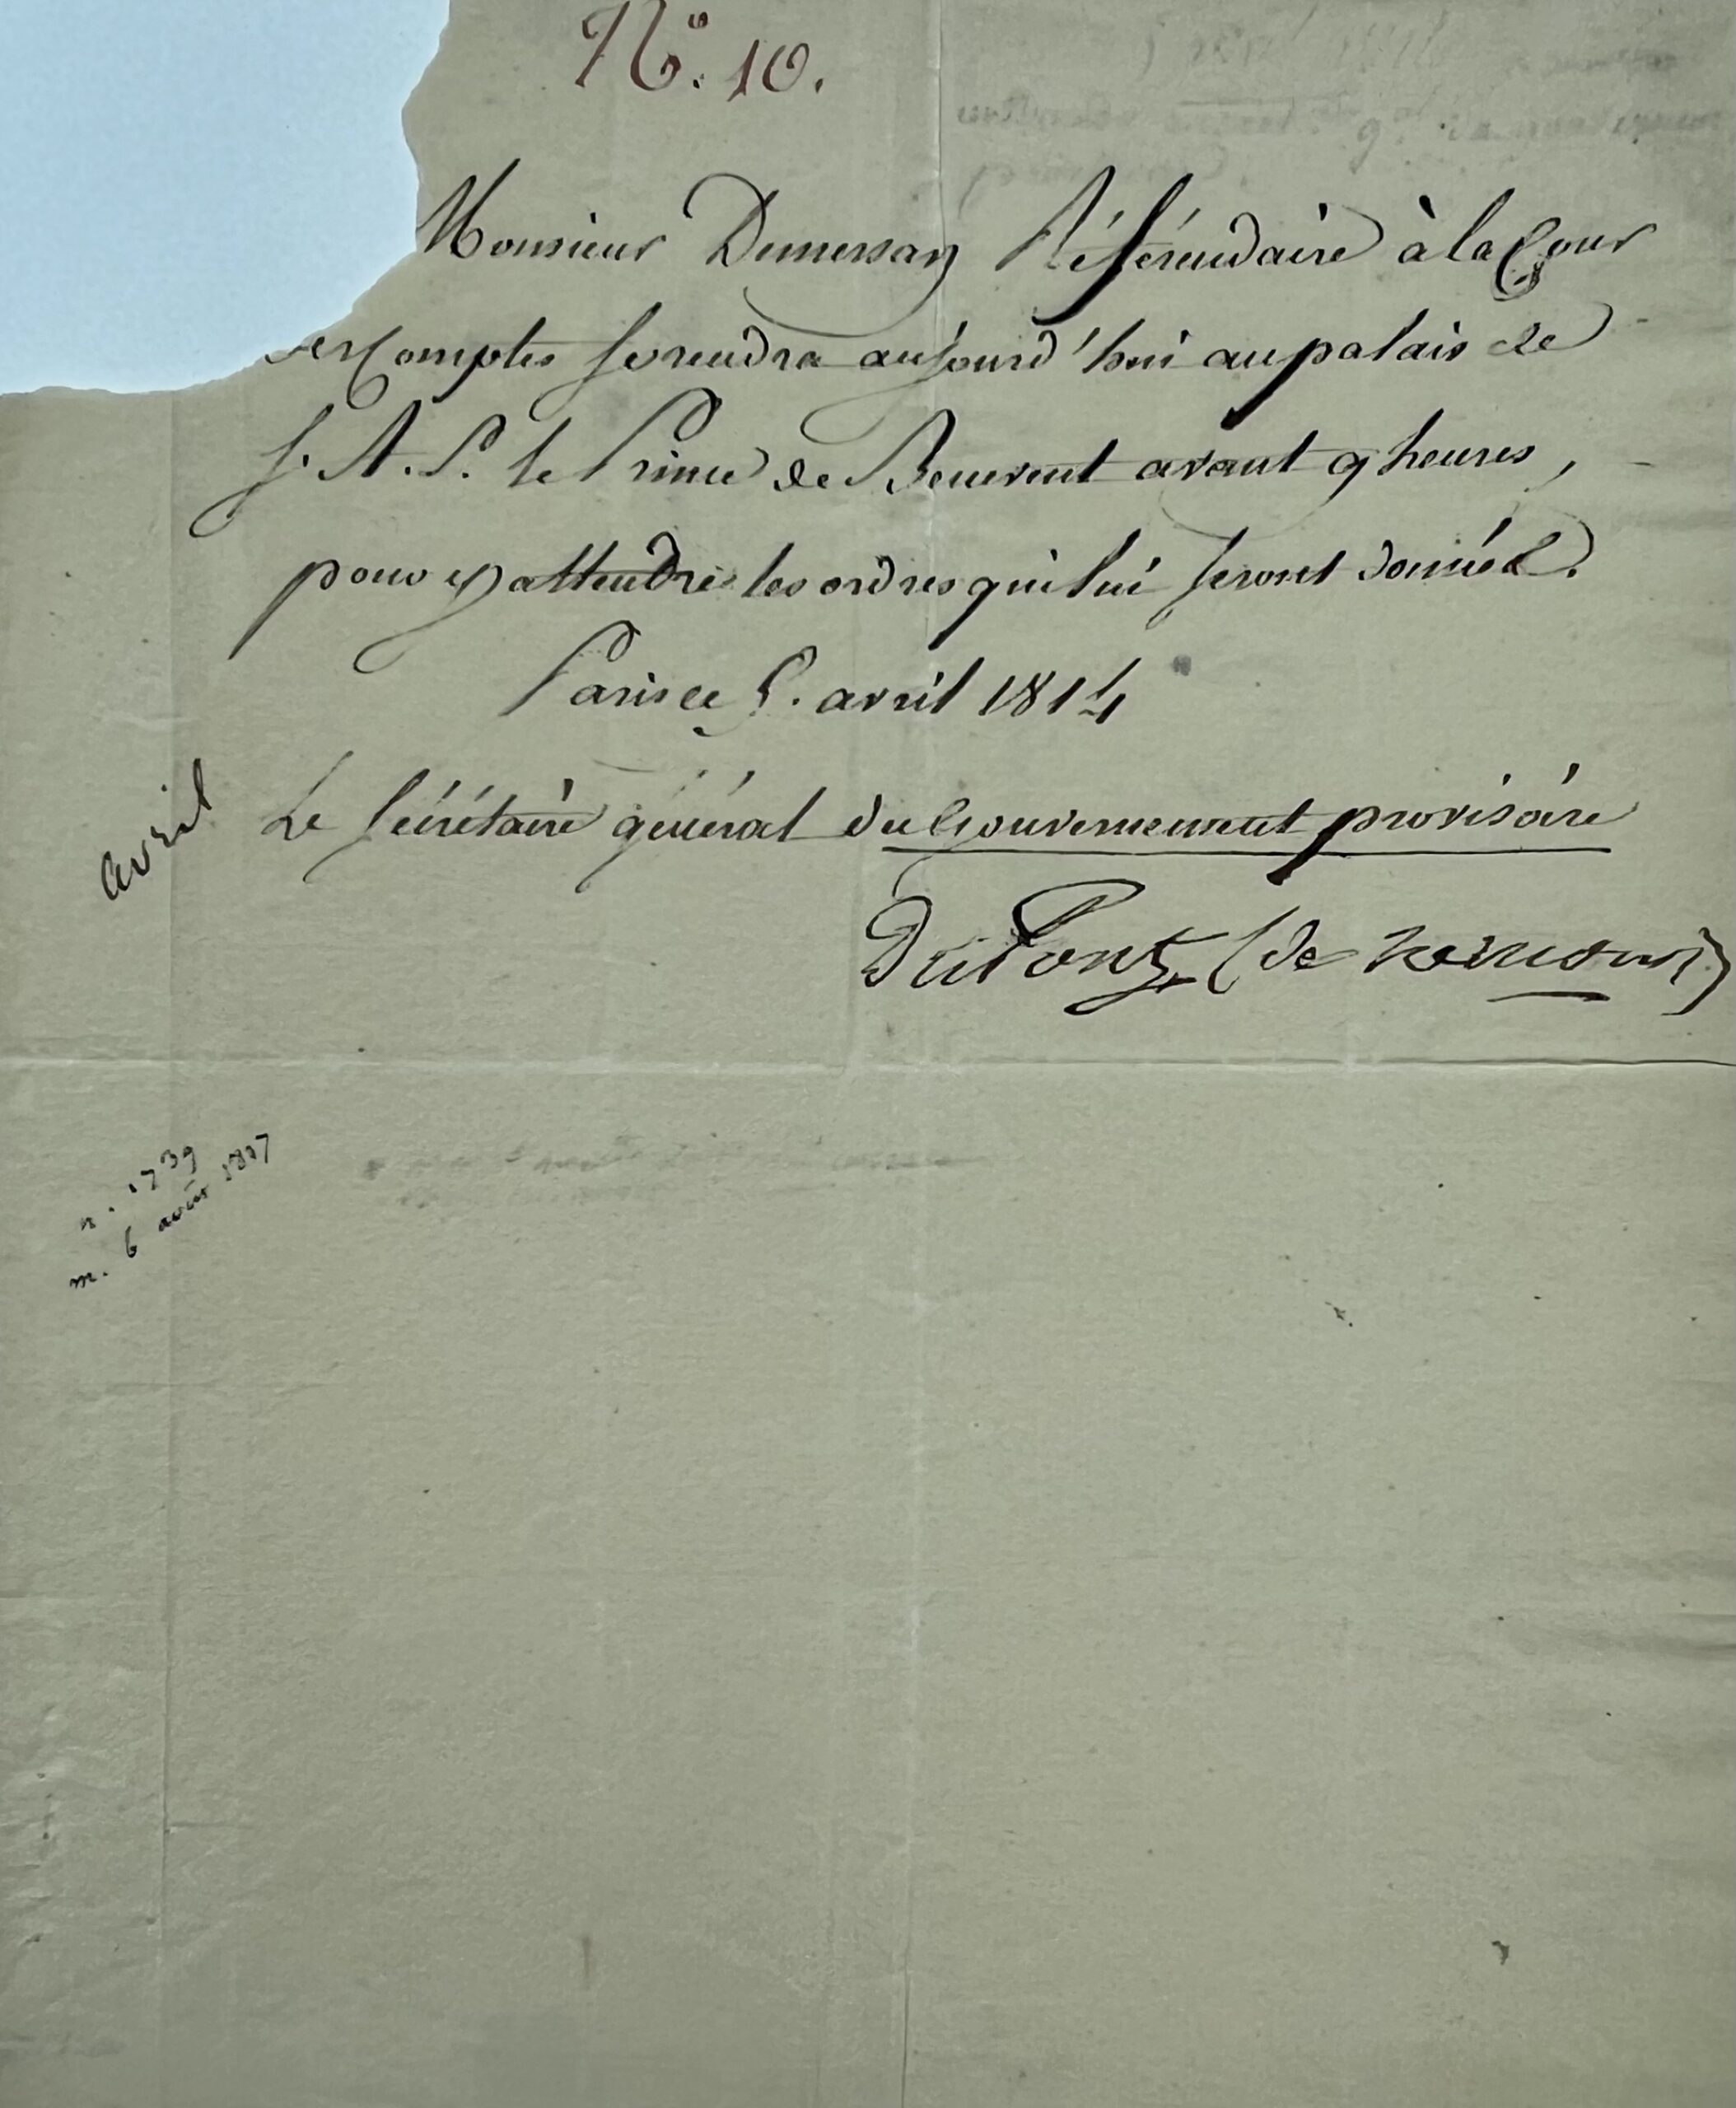 N.º 10.
Monsieur Dumersan Référendaire à la Cour
des Comptes se rendra aujourd'hui au palais de
S. A. S. le Prince de Benevent avant 9 heures,
pour y attendre les ordres qui lui seront donnés.
Paris ce 5. avril 1814
Le Sécrétaire général du Gouvernement provisoire
DuPont (de nemours)
avril
n. 1739
m. 6 août 1817